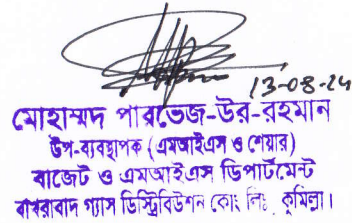 13-08-24
মোহাম্মদ পারভেজ-উর-রহমান
উপ-ব্যবস্থাপক (এমআইএস ও শেয়ার)
বাজেট ও এমআইএস ডিপার্টমেন্ট
বাখরাবাদ গ্যাস ডিস্ট্রিবিউশন কোং লিঃ, কুমিল্লা।